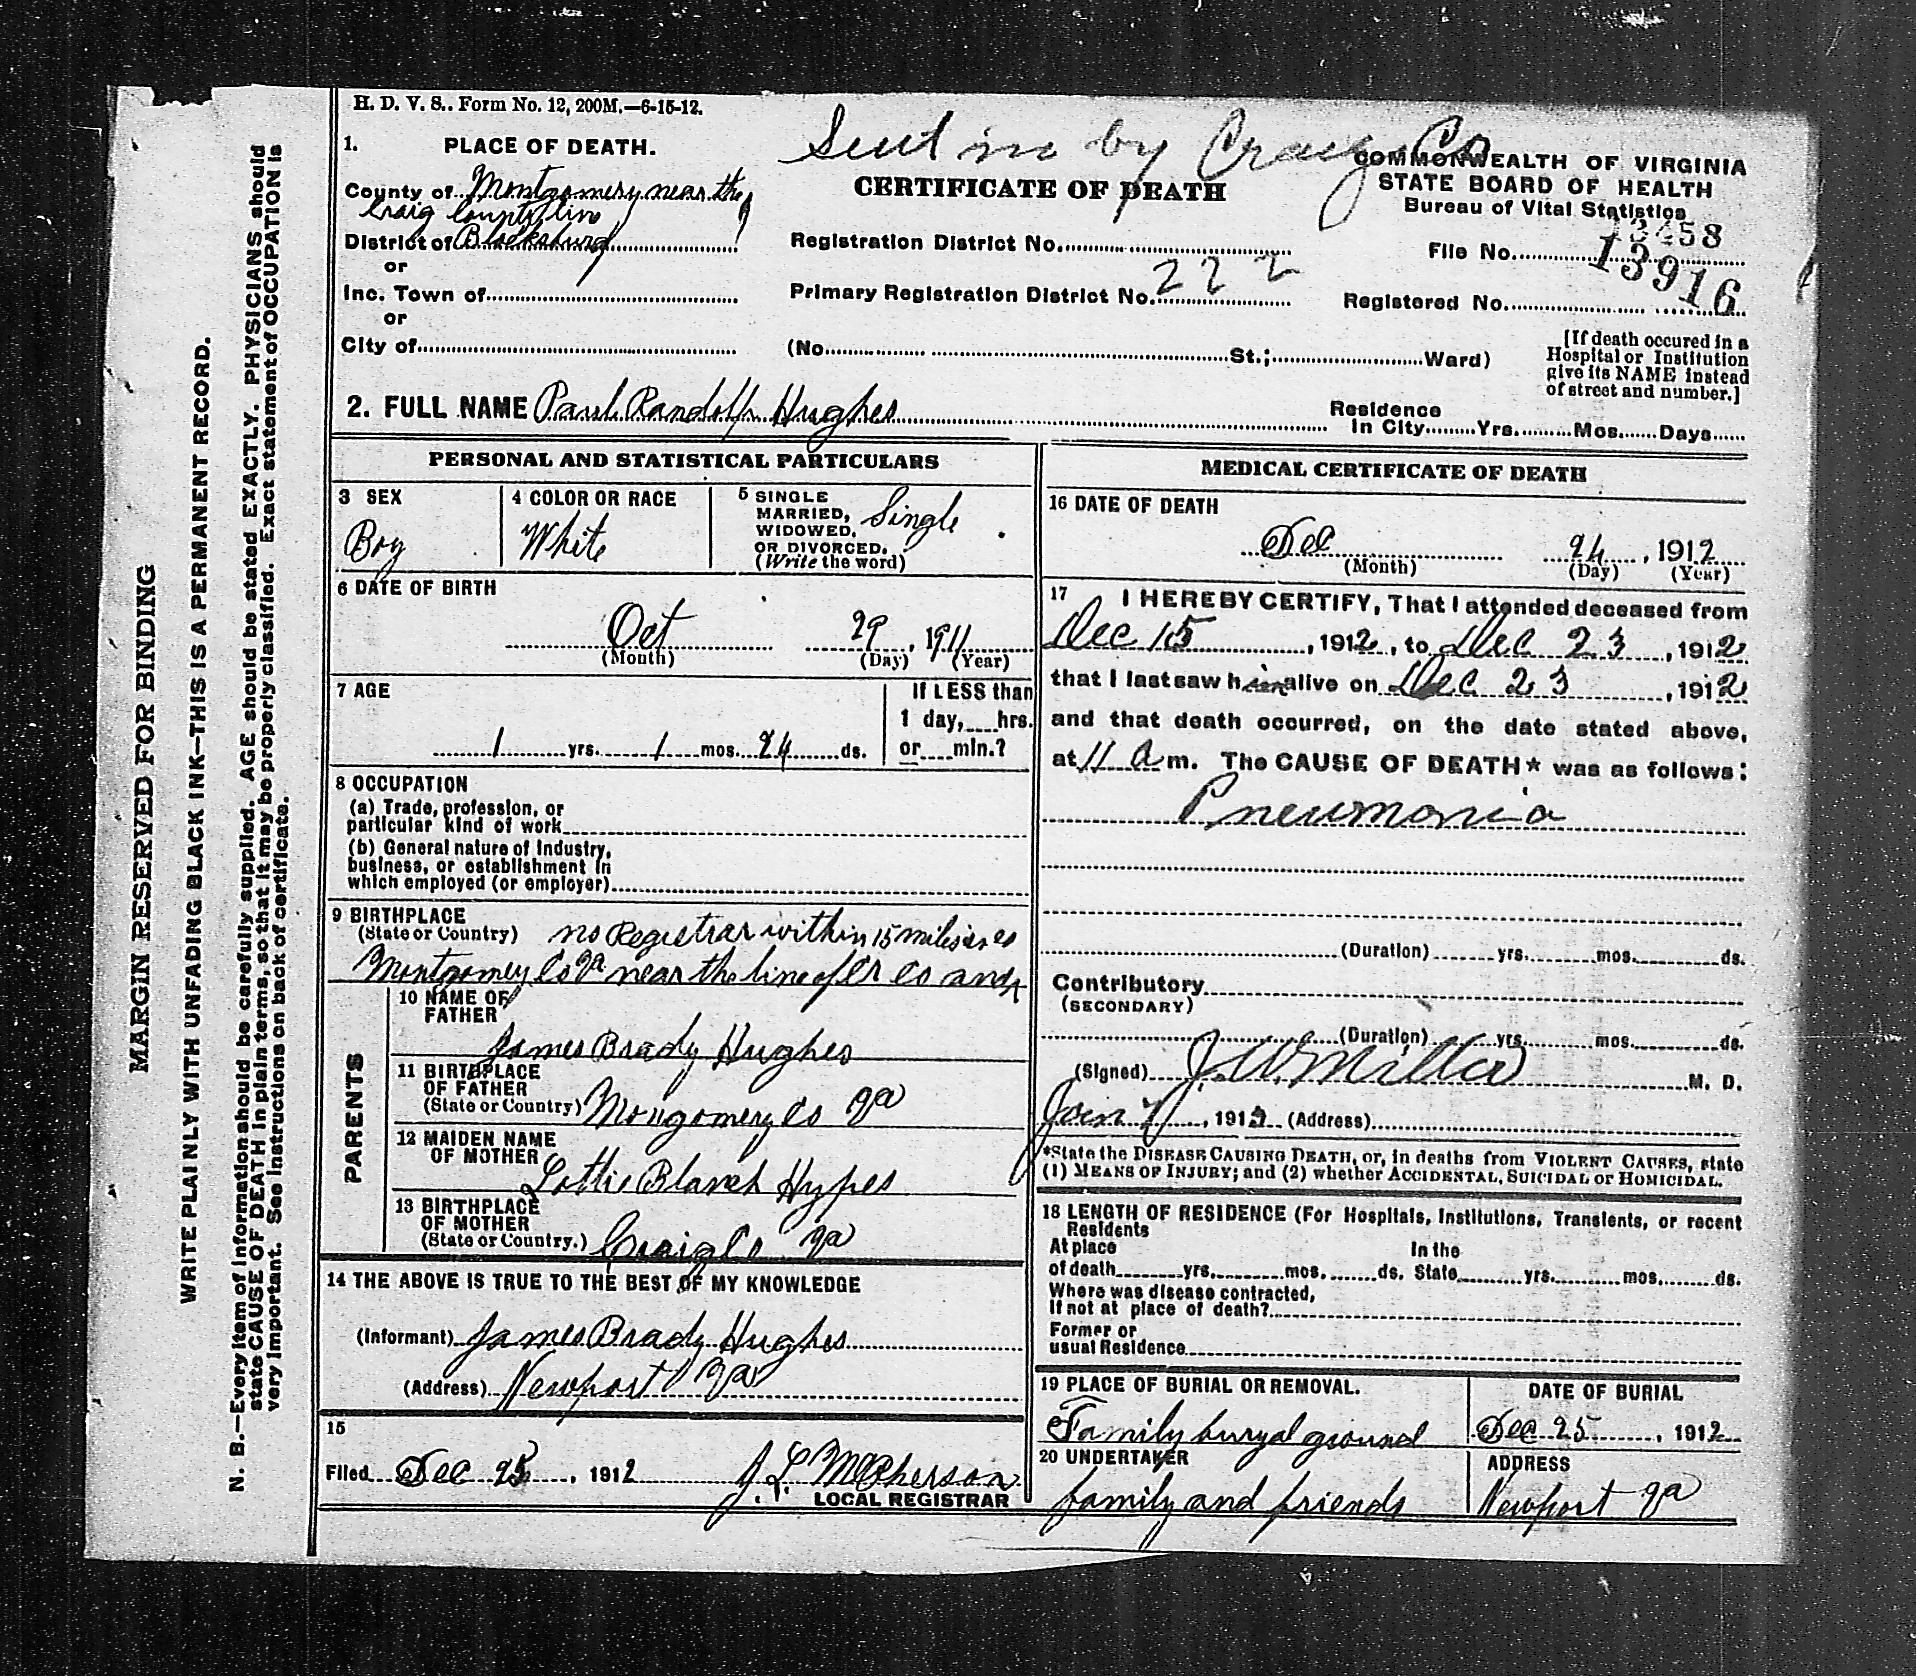 H. D. V. S.. Form No. 12, 200M.—6-15-12.
Sent in by Craig Co
1. PLACE OF DEATH.
County of Montgomery near the
Craig County line
District of Blacksburg
or
Inc. Town of
or
City of
CERTIFICATE OF DEATH
Registration District No.
Primary Registration District No. 222
(No. St.; Ward)
COMMONWEALTH OF VIRGINIA
STATE BOARD OF HEALTH
Bureau of Vital Statistics
File No. 13916
Registered No.
[If death occured in a
Hospital or Institution
give its NAME instead
of street and number.]
2. FULL NAME Paul Randolph Hughes
Residence
In City Yrs. Mos. Days
PERSONAL AND STATISTICAL PARTICULARS
3 SEX
Boy
4 COLOR OR RACE
White
5 SINGLE
MARRIED,
WIDOWED,
OR DIVORCED.
(Write the word)
Single
6 DATE OF BIRTH
Oct 29, 1911
(Month) (Day) (Year)
7 AGE
1 yrs. 1 mos. 24 ds.
If LESS than
1 day, hrs.
or min.?
8 OCCUPATION
(a) Trade, profession, or
particular kind of work
(b) General nature of Industry,
business, or establishment in
which employed (or employer)
9 BIRTHPLACE
(State or Country) no Registrar within 15 miles in
Montgomey Co Va near the line of Cr Co and
PARENTS
10 NAME OF
FATHER
James Brady Hughes
11 BIRTHPLACE
OF FATHER
(State or Country) Mongomery Co Va
12 MAIDEN NAME
OF MOTHER
Lottie Blanch Hypes
13 BIRTHPLACE
OF MOTHER
(State or Country.) Craig Co Va
14 THE ABOVE IS TRUE TO THE BEST OF MY KNOWLEDGE
(Informant) James Brady Hughes
(Address) Newport Va
15
Filed Dec 25, 1912 J. L. McPherson
LOCAL REGISTRAR
MEDICAL CERTIFICATE OF DEATH
16 DATE OF DEATH
Dec 24, 1912
(Month) (Day) (Year)
17 I HEREBY CERTIFY, That I attended deceased from
Dec 15, 1912, to Dec 23, 1912
that I last saw him alive on Dec 23, 1912
and that death occurred, on the date stated above,
at 11 a m. The CAUSE OF DEATH* was as follows:
Pneumonia
(Duration) yrs. mos. ds.
Contributory
(SECONDARY)
(Duration) yrs. mos. ds.
(Signed) J. W. Miller M. D.
Jan 7, 1913 (Address)
*State the DISEASE CAUSING DEATH, or, in deaths from VIOLENT CAUSES, state
(1) MEANS OF INJURY; and (2) whether ACCIDENTAL, SUICIDAL or HOMICIDAL.
18 LENGTH OF RESIDENCE (For Hospitals, Institutions, Transients, or recent
Residents
At place
of death yrs. mos. ds.
In the
State yrs. mos. ds.
Where was disease contracted,
If not at place of death?
Former or
usual Residence
19 PLACE OF BURIAL OR REMOVAL.
Family buryal ground
DATE OF BURIAL
Dec 25, 1912
20 UNDERTAKER
family and friends
ADDRESS
Newport Va
MARGIN RESERVED FOR BINDING
WRITE PLAINLY WITH UNFADING BLACK INK—THIS IS A PERMANENT RECORD.
N. B.—Every item of information should be carefully supplied. AGE should be stated EXACTLY. PHYSICIANS should
state CAUSE OF DEATH in plain terms, so that it may be properly classified. Exact statement of OCCUPATION is
very important. See instructions on back of certificate.